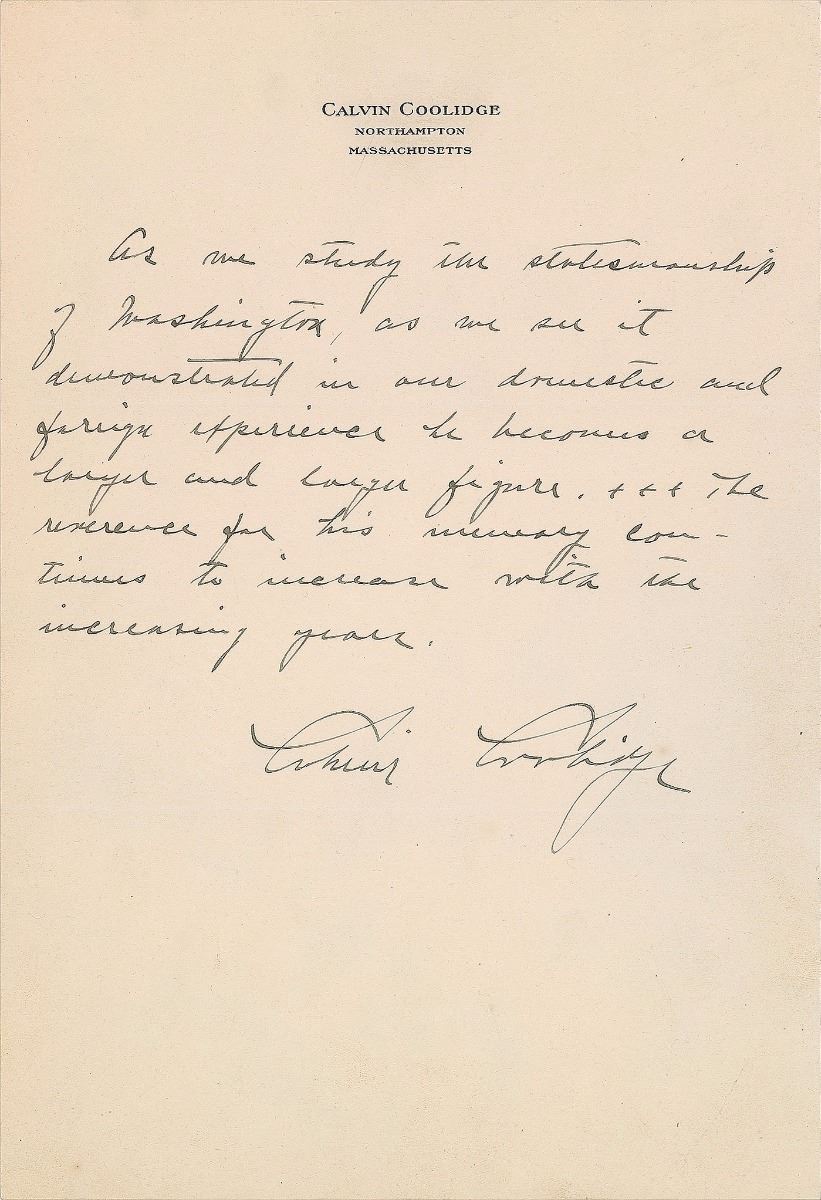 CALVIN COOLIDGE
NORTHAMPTON
MASSACHUSETTS
As we study the statesmanship
of Washington, as we see it
demonstrated in our domestic and
foreign experience he becomes a
larger and larger figure. +++ The
reverence for his memory con-
tinues to increase with the
increasing years.
Calvin Coolidge